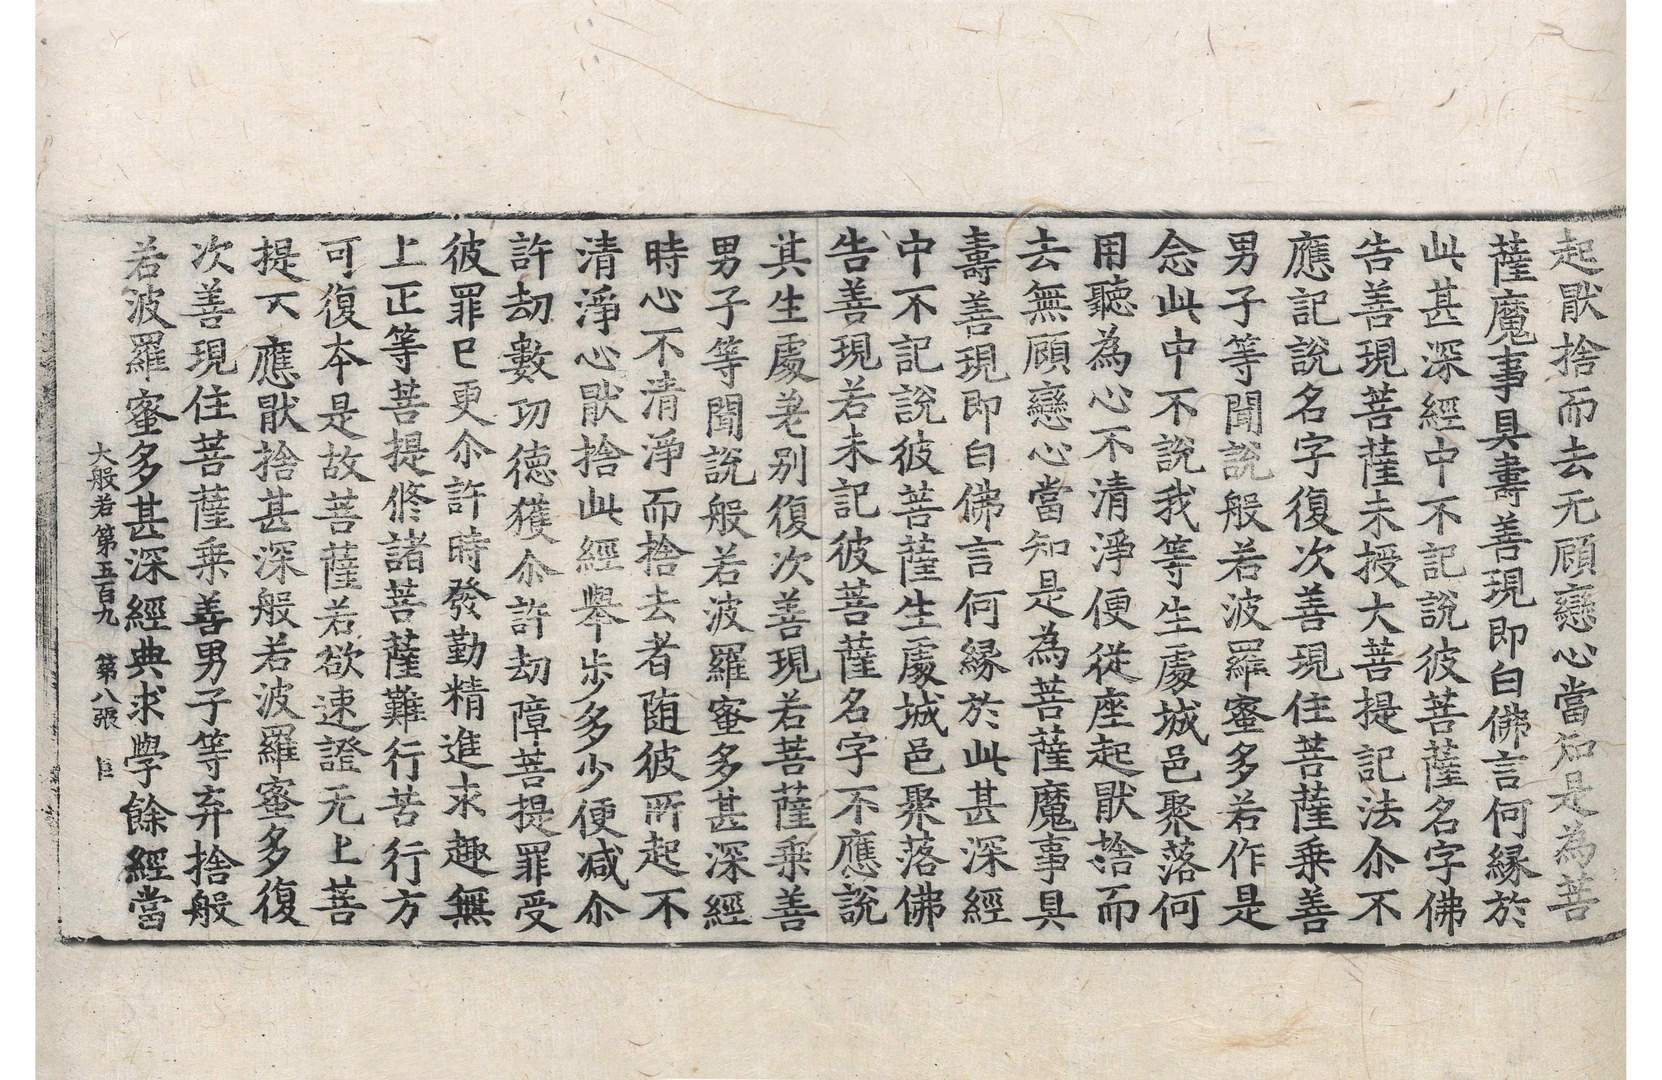 起猒捨而去无顧戀心當知是為菩
薩魔事具壽善現即白佛言何緣於
此甚深經中不記說彼菩薩名字佛
告善現菩薩未授大菩提記法尒不
應記說名字復次善現住菩薩乗善
男子等聞說般若波羅蜜多若作是
念此中不說我等生處城邑聚落何
用聽為心不清淨便從座起猒捨而
去無顧戀心當知是為菩薩魔事具
壽善現即白佛言何緣於此甚深經
中不記說彼菩薩生處城邑聚落佛
告善現若未記彼菩薩名字不應說
其生處差別復次善現若菩薩乗善
男子等聞說般若波羅蜜多甚深經
時心不清淨而捨去者随彼所起不
清淨心猒捨此經舉步多少便減尒
許劫數功德獲尒許劫障菩提罪受
彼罪已更尒許時發勤精進求趣無
上正等菩提修諸菩薩難行苦行方
可復本是故菩薩若欲速證无上菩
提不應猒捨甚深般若波羅蜜多復
次善現住菩薩乗善男子等弃捨般
若波羅蜜多甚深經典求學餘經當
大般若第五百九 第八張 巨